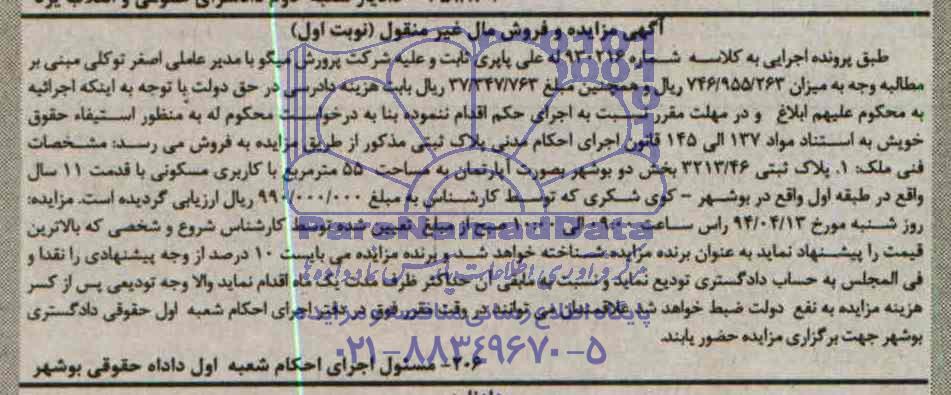 آگهی مزایده و فروش مال غیر منقول (نوبت اول)
طبق پرونده اجرایی به کلاسه شماره ۹۳۰۲۱۶ له علی پاپری ثابت و علیه شرکت پرورش میگو با مدیر عاملی اصغر توکلی مبنی بر
مطالبه وجه به میزان ۷۴۶/۹۵۵/۲۶۳ ریال و همچنین مبلغ ۳۷/۳۴۷/۷۶۳ ریال بابت هزینه دادرسی در حق دولت با توجه به اینکه اجرائیه
به محکوم علیهم ابلاغ و در مهلت مقرر نسبت به اجرای حکم اقدام ننموده بنا به درخواست محکوم له به منظور استیفاء حقوق
خویش به استناد مواد ۱۳۷ الی ۱۴۵ قانون اجرای احکام مدنی پلاک ثبتی مذکور از طریق مزایده به فروش می رسد: مشخصات
فنی ملک: ۱. پلاک ثبتی ۳۲۱۳/۴۶ بخش دو بوشهر بصورت آپارتمان به مساحت ۵۵ مترمربع با کاربری مسکونی با قدمت ۱۱ سال
واقع در طبقه اول واقع در بوشهر - کوی شکری که توسط کارشناس به مبلغ ۹۹۰/۰۰۰/۰۰۰ ریال ارزیابی گردیده است. مزایده:
روز شنبه مورخ ۹۴/۰۴/۱۳ راس ساعت ۹:۰۰ الی ۱۰:۰۰ صبح از مبلغ تعیین شده توسط کارشناس شروع و شخصی که بالاترین
قیمت را پیشنهاد نماید به عنوان برنده مزایده شناخته خواهد شد و برنده مزایده می بایست ۱۰ درصد از وجه پیشنهادی را نقدا و
فی المجلس به حساب دادگستری تودیع نماید و نسبت به مابقی آن حداکثر ظرف مدت یک ماه اقدام نماید والا وجه تودیعی پس از کسر
هزینه مزایده به نفع دولت ضبط خواهد شد علاقمندان می توانند در وقت مقرر فوق در دفتر اجرای احکام شعبه اول حقوقی دادگستری
بوشهر جهت برگزاری مزایده حضور یابند.
۲۰۶- مسئول اجرای احکام شعبه اول داداه حقوقی بوشهر
ParsNamadData
۰۲۱-۸۸۳۴۹۶۷۰-۵